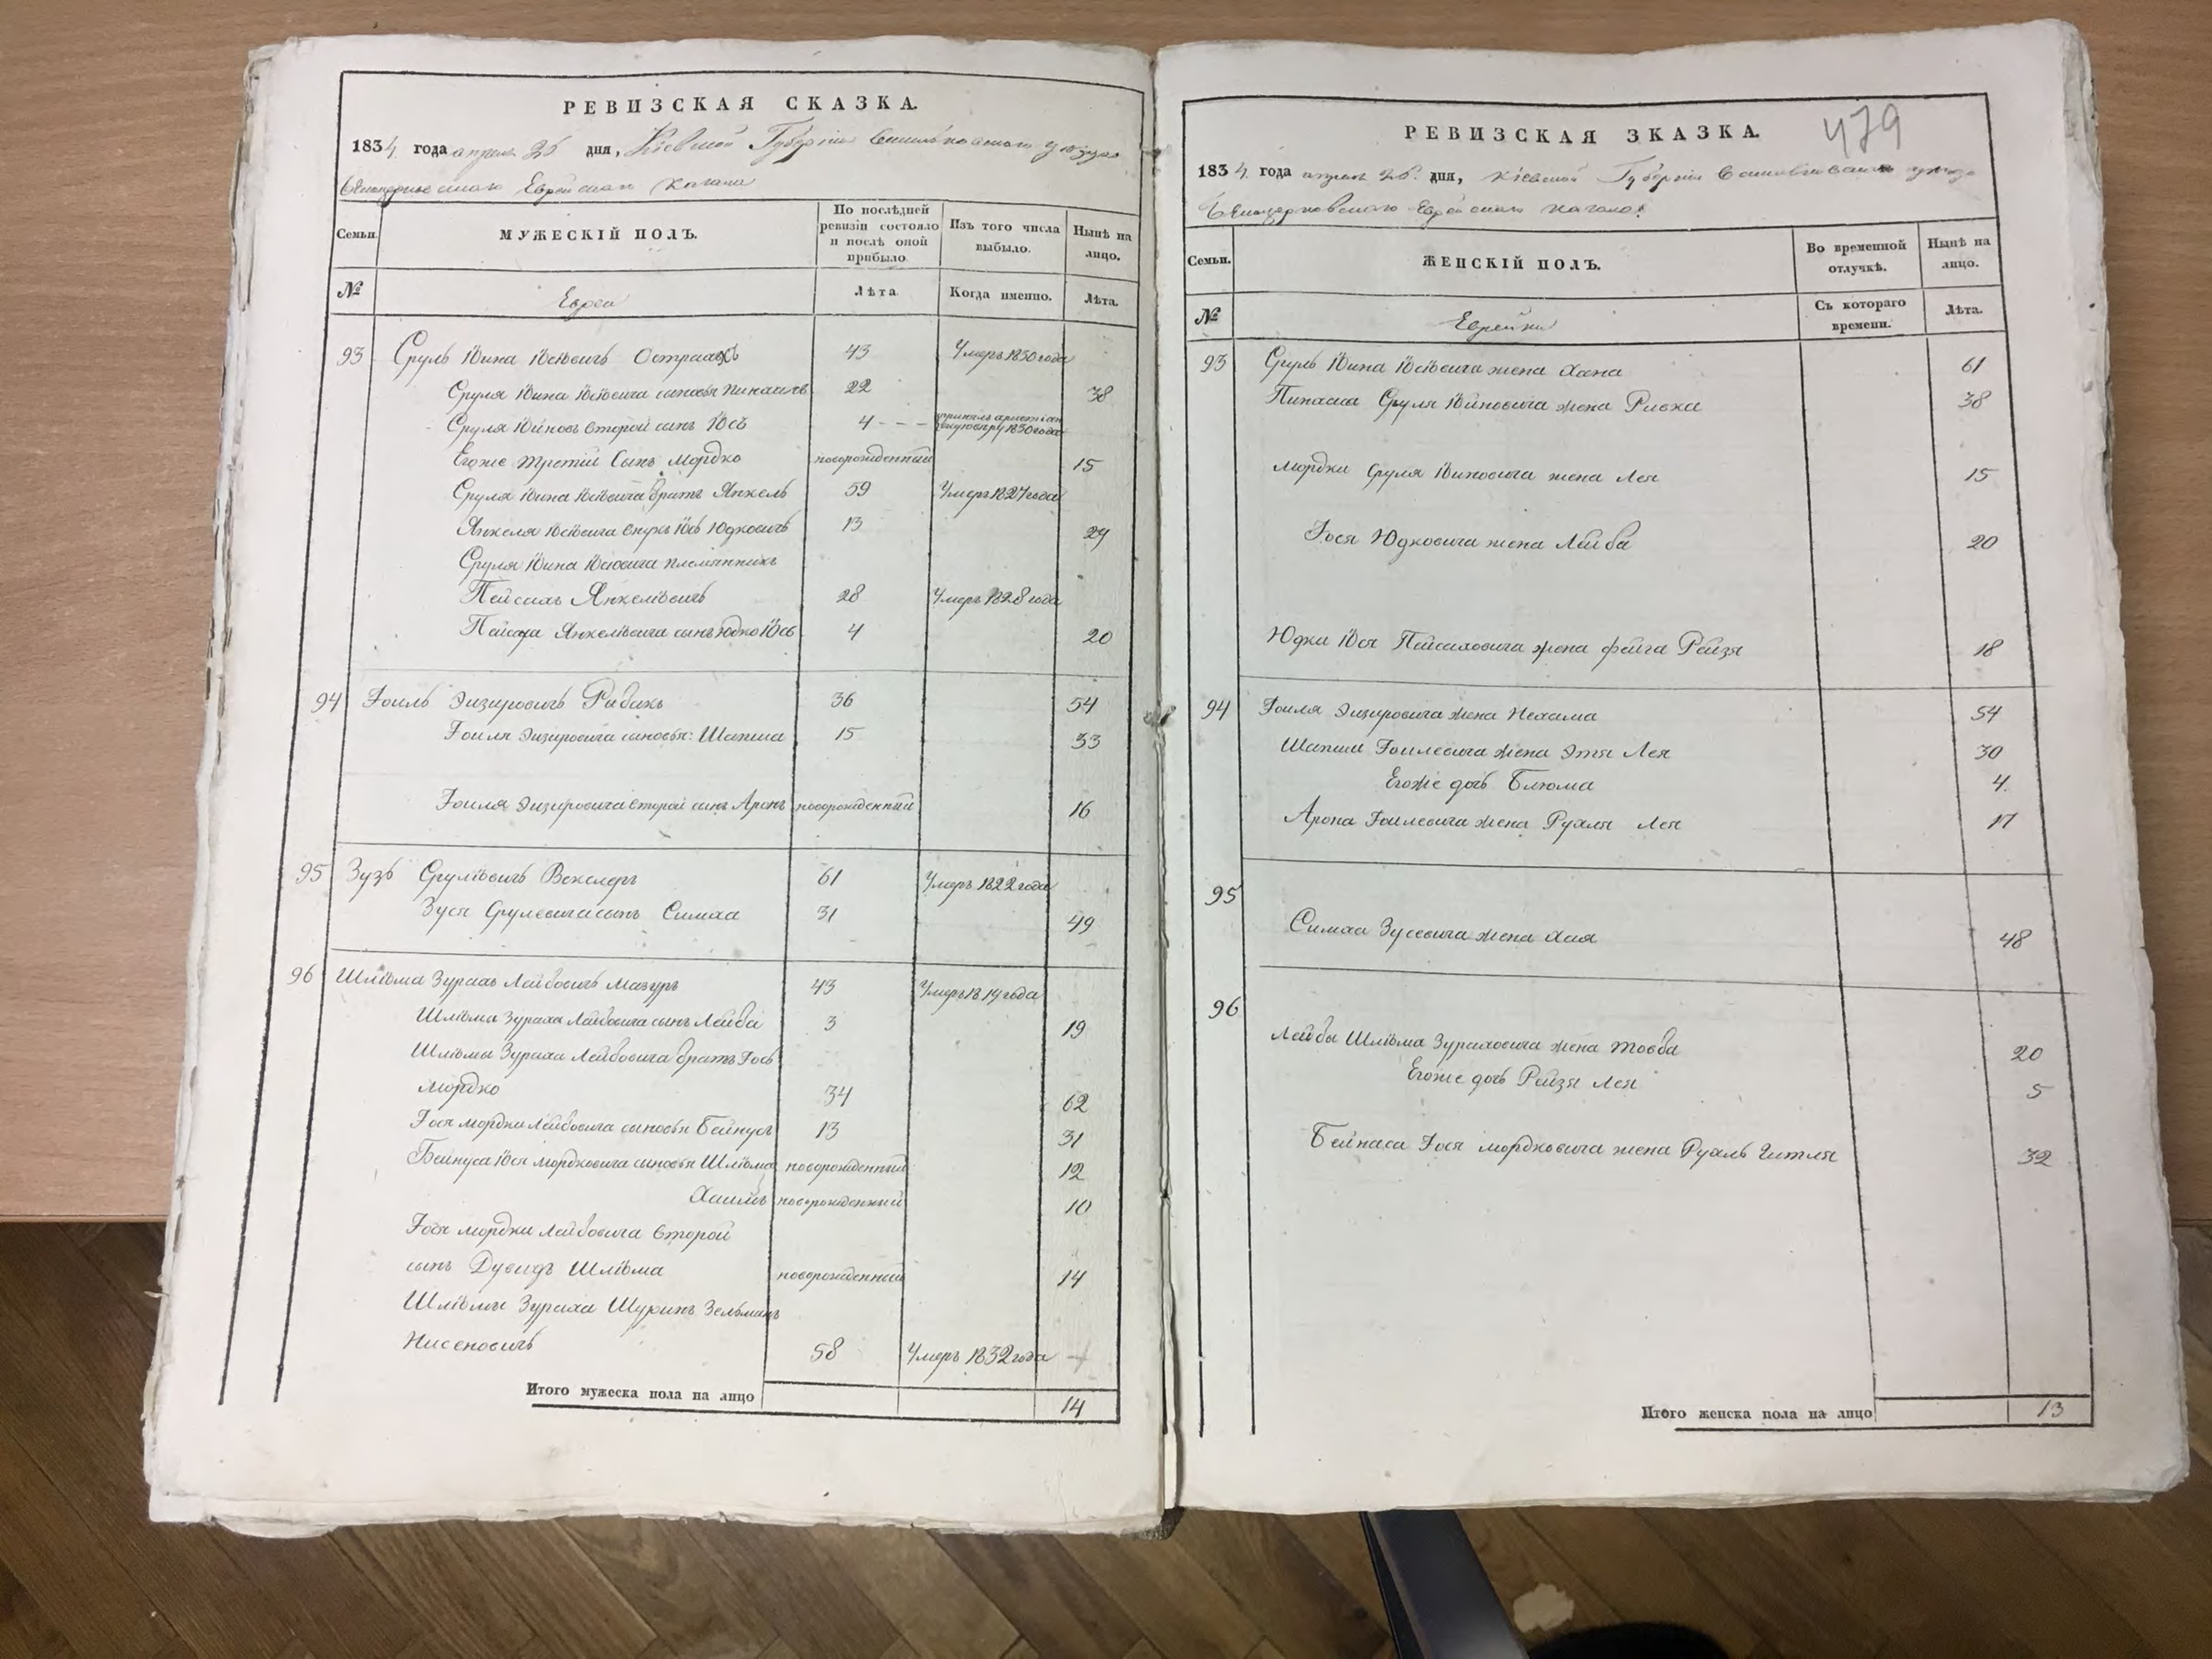 РЕВИЗСКАЯ СКАЗКА.
1834 года апреля 25 дня, Кіевской Губерніи Васильковского уезда
Белоцерковского Еврейскаго Кагала
Семьи.
МУЖЕСКІЙ ПОЛЪ.
По послѣдней ревизіи состояло и послѣ оной прибыло.
Изъ того числа выбыло.
Нынѣ на лицо.
№
Евреи
Лѣта.
Когда именно.
Лѣта.
93 Сруль Іойна Іосіовичь 43 Умеръ 1830 года
Сруля Іойна Іосіовича сыновья Пинхасъ 22 38
Сруля Іойновъ второй сынъ Іось 4 1830 года
Егоже третій Сынъ Мордко новорожденный 15
Сруля Іойна Іосіовича братъ Янкель 59 Умеръ 1827 года
Янкеля Іосіовича внукъ Іось Юдковичь 13 29
Сруля Іойна Іосіовича племянникъ
Пейсахъ Янкеліовичь 28 Умеръ 1828 года
Пейсаха Янкеліовича сынъ Юдко Іось 4 20
94 Гоиль Эизеровичь Рыбакъ 36 54
Гоиля Эизеровича сыновья: Шапша 15 33
Гоиля Эизеровича второй сынъ Аронъ новорожденный 16
95 Зусь Сруліовичь Векслеръ 61 Умеръ 1822 года
Зуся Срулевича сынъ Симха 31 49
96 Шліома Зурахъ Лейбовичь Мазуръ 43 Умеръ 1819 года
Шліомы Зураха Лейбовича сынъ Лейба 3 19
Шліомы Зураха Лейбовича братъ Гось
Мордко 34 62
Гося Мордки Лейбовича сыновья Бейнусъ 13 31
Бейнуса Іося Мордковича сыновья Шліома новорожденный 12
Хаимъ новорожденный 10
Гося Мордки Лейбовича второй
сынъ Дувидъ Шліома новорожденный 14
Шліомы Зураха Шуринъ Зельманъ
Нисеновичь 58 Умеръ 1832 года
Итого мужеска пола на лицо 14
479
РЕВИЗСКАЯ ЗКАЗКА.
1834 года апреля 25 дня, Кіевской Губерніи Васильковскаго уезда
Белоцерковскаго Еврейскаго Кагала
Семьи.
ЖЕНСКІЙ ПОЛЪ.
Во временной отлучкѣ.
Нынѣ на лицо.
№
Еврейки
Съ котораго времени.
Лѣта.
93 Сруль Іойна Іосіовича жена Хана 61
Пинхаса Сруля Іойновича жена Ривка 38
Мордки Сруля Іойновича жена Лея 15
Гося Юдковича жена Лейба 20
Юдки Іося Пейсаховича жена Фейга Рейзя 18
94 Гоиля Эизеровича жена Нехама 54
Шапши Гоилевича жена Этя Лея 30
Егоже дочь Блюма 4
Арона Гоилевича жена Рухля Лея 17
95
Симха Зусевича жена Хая 48
96
Лейбы Шліома Зураховича жена Товба 20
Егоже дочь Рейзя Лея 5
Бейнаса Гося Мордковича жена Рухль Гитля 32
Итого женска пола на лицо 13